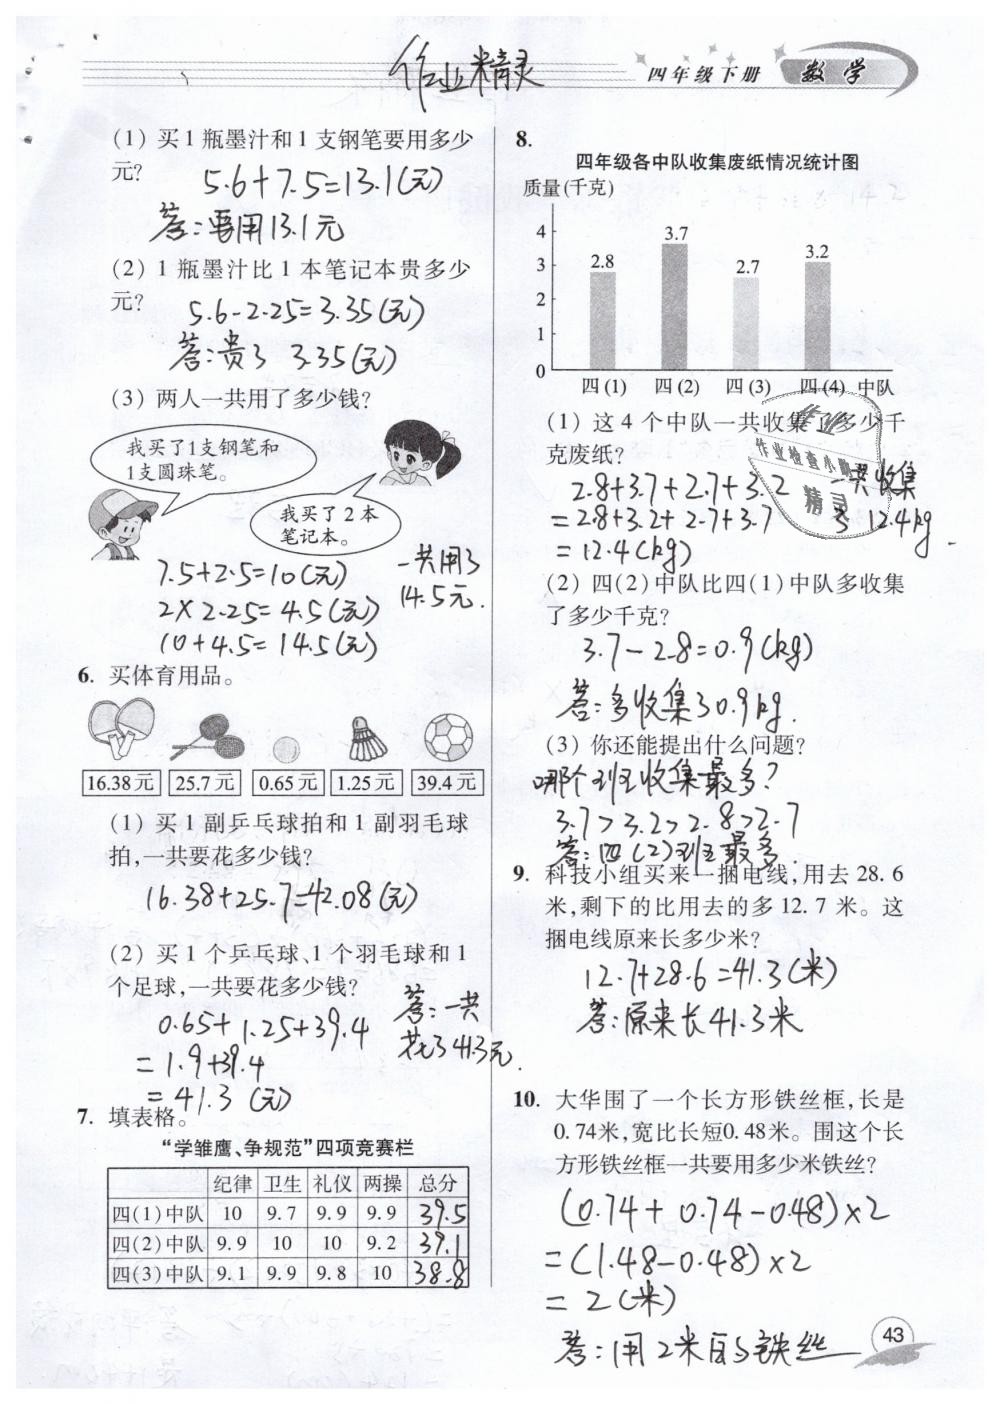 作业精灵
四年级下册 数学
(1) 买1瓶墨汁和1支钢笔要用多少
元?
5.6+7.5=13.1(元)
答:要用13.1元
(2) 1瓶墨汁比1本笔记本贵多少
元?
5.6-2.25=3.35(元)
答:贵了 3.35(元)
(3) 两人一共用了多少钱?
我买了1支钢笔和
1支圆珠笔。
我买了2本
笔记本。
7.5+2.5=10(元)
2×2.25=4.5(元)
10+4.5=14.5(元)
一共用了
14.5元.
6. 买体育用品。
16.38元 25.7元 0.65元 1.25元 39.4元
(1) 买1副乒乓球拍和1副羽毛球
拍,一共要花多少钱?
16.38+25.7=42.08(元)
(2) 买1个乒乓球、1个羽毛球和1
个足球,一共要花多少钱?
0.65+1.25+39.4
=1.9+39.4
=41.3(元)
答:一共
花了41.3元.
7. 填表格。
“学雏鹰、争规范”四项竞赛栏
纪律 卫生 礼仪 两操 总分
四(1)中队 10 9.7 9.9 9.9 39.5
四(2)中队 9.9 10 10 9.2 39.1
四(3)中队 9.1 9.9 9.8 10 38.8
8.
四年级各中队收集废纸情况统计图
质量(千克)
4
3
2
1
0
2.8 3.7 2.7 3.2
四(1) 四(2) 四(3) 四(4) 中队
(1) 这4个中队一共收集了多少千
克废纸?
作业
作业检查小
精灵
2.8+3.7+2.7+3.2
=2.8+3.2+2.7+3.7
=12.4(kg)
一共收集
了 12.4kg
(2) 四(2)中队比四(1)中队多收集
了多少千克?
3.7-2.8=0.9(kg)
答:多收集了0.9kg.
(3) 你还能提出什么问题?
哪个班收集最多?
3.7>3.2>2.8>2.7
答:四(2)班最多.
9. 科技小组买来一捆电线,用去28.6
米,剩下的比用去的多12.7米。这
捆电线原来长多少米?
12.7+28.6=41.3(米)
答:原来长41.3米
10. 大华围了一个长方形铁丝框,长是
0.74米,宽比长短0.48米。围这个长
方形铁丝框一共要用多少米铁丝?
(0.74+0.74-0.48)×2
=(1.48-0.48)×2
=2(米)
答:用2米的铁丝
43